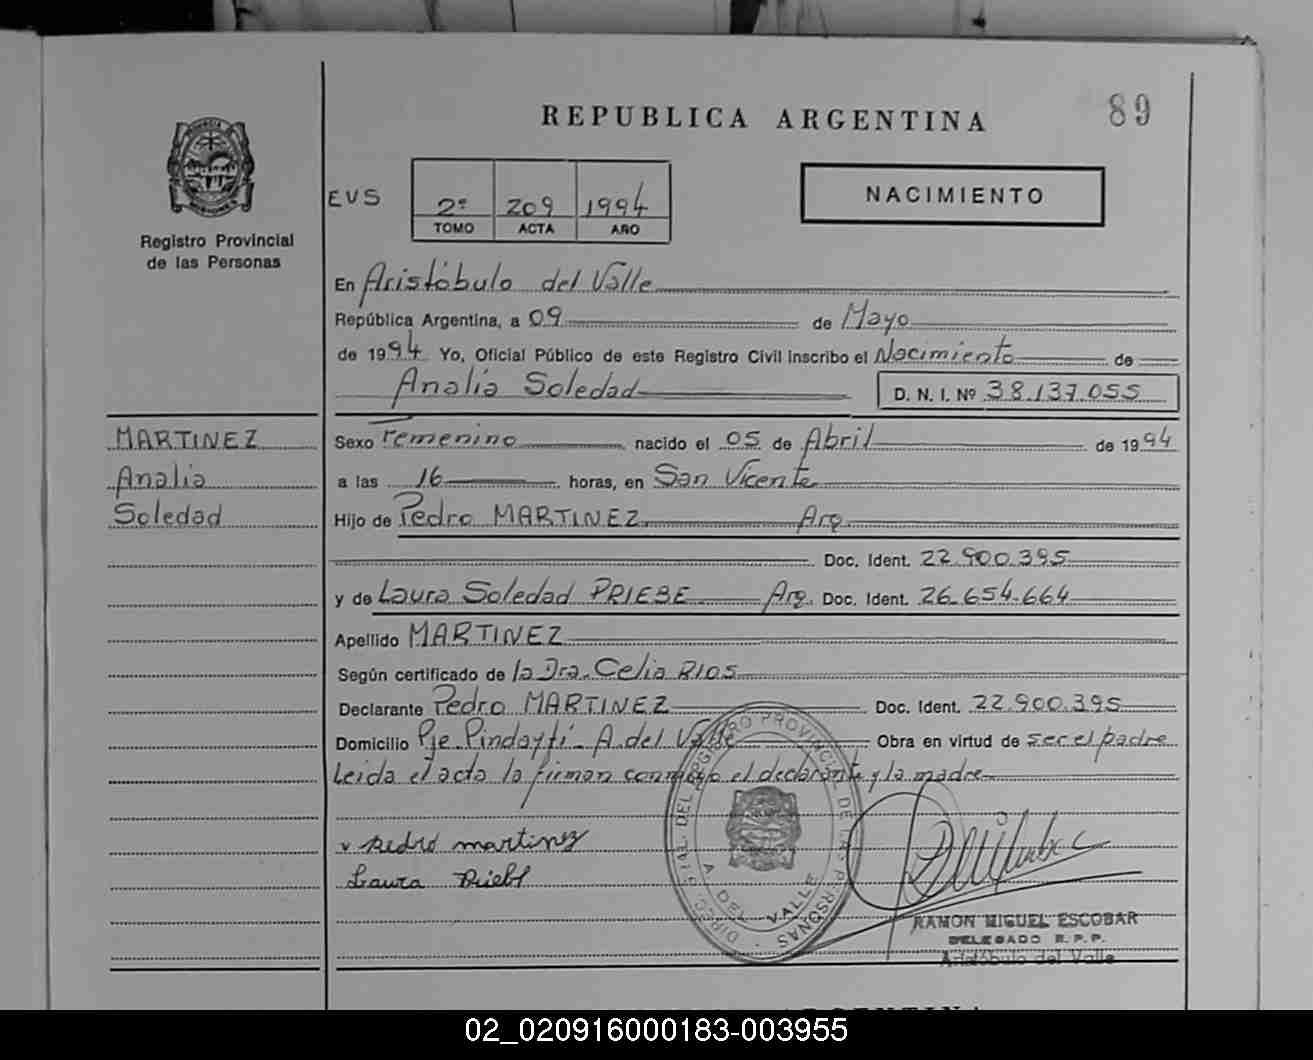 REPUBLICA ARGENTINA
89
Registro Provincial
de las Personas
EVS
2º 209 1994
TOMO ACTA AÑO
NACIMIENTO
En Aristóbulo del Valle
República Argentina, a 09 de Mayo
de 1994 Yo, Oficial Público de este Registro Civil inscribo el Nacimiento de
Analia Soledad
D. N. I. Nº 38.137.055
MARTINEZ
Analia
Soledad
Sexo Femenino nacido el 05 de Abril de 1994
a las 16 horas, en San Vicente
Hijo de Pedro MARTINEZ Arg.
Doc. Ident. 22.900.395
y de Laura Soledad PRIEBE Arg. Doc. Ident. 26.654.664
Apellido MARTINEZ
Según certificado de la Dra. Celia RIOS
Declarante Pedro MARTINEZ Doc. Ident. 22.900.395
Domicilio Pje. Pindaytí - A. del Valle Obra en virtud de ser el padre
Leida el acta la firman conmigo el declarante y la madre
Pedro martinez
Laura
A DEL VALLE
RAMON MIGUEL ESCOBAR
DELEGADO R.P.P.
Aristóbulo del Valle
02_020916000183-003955